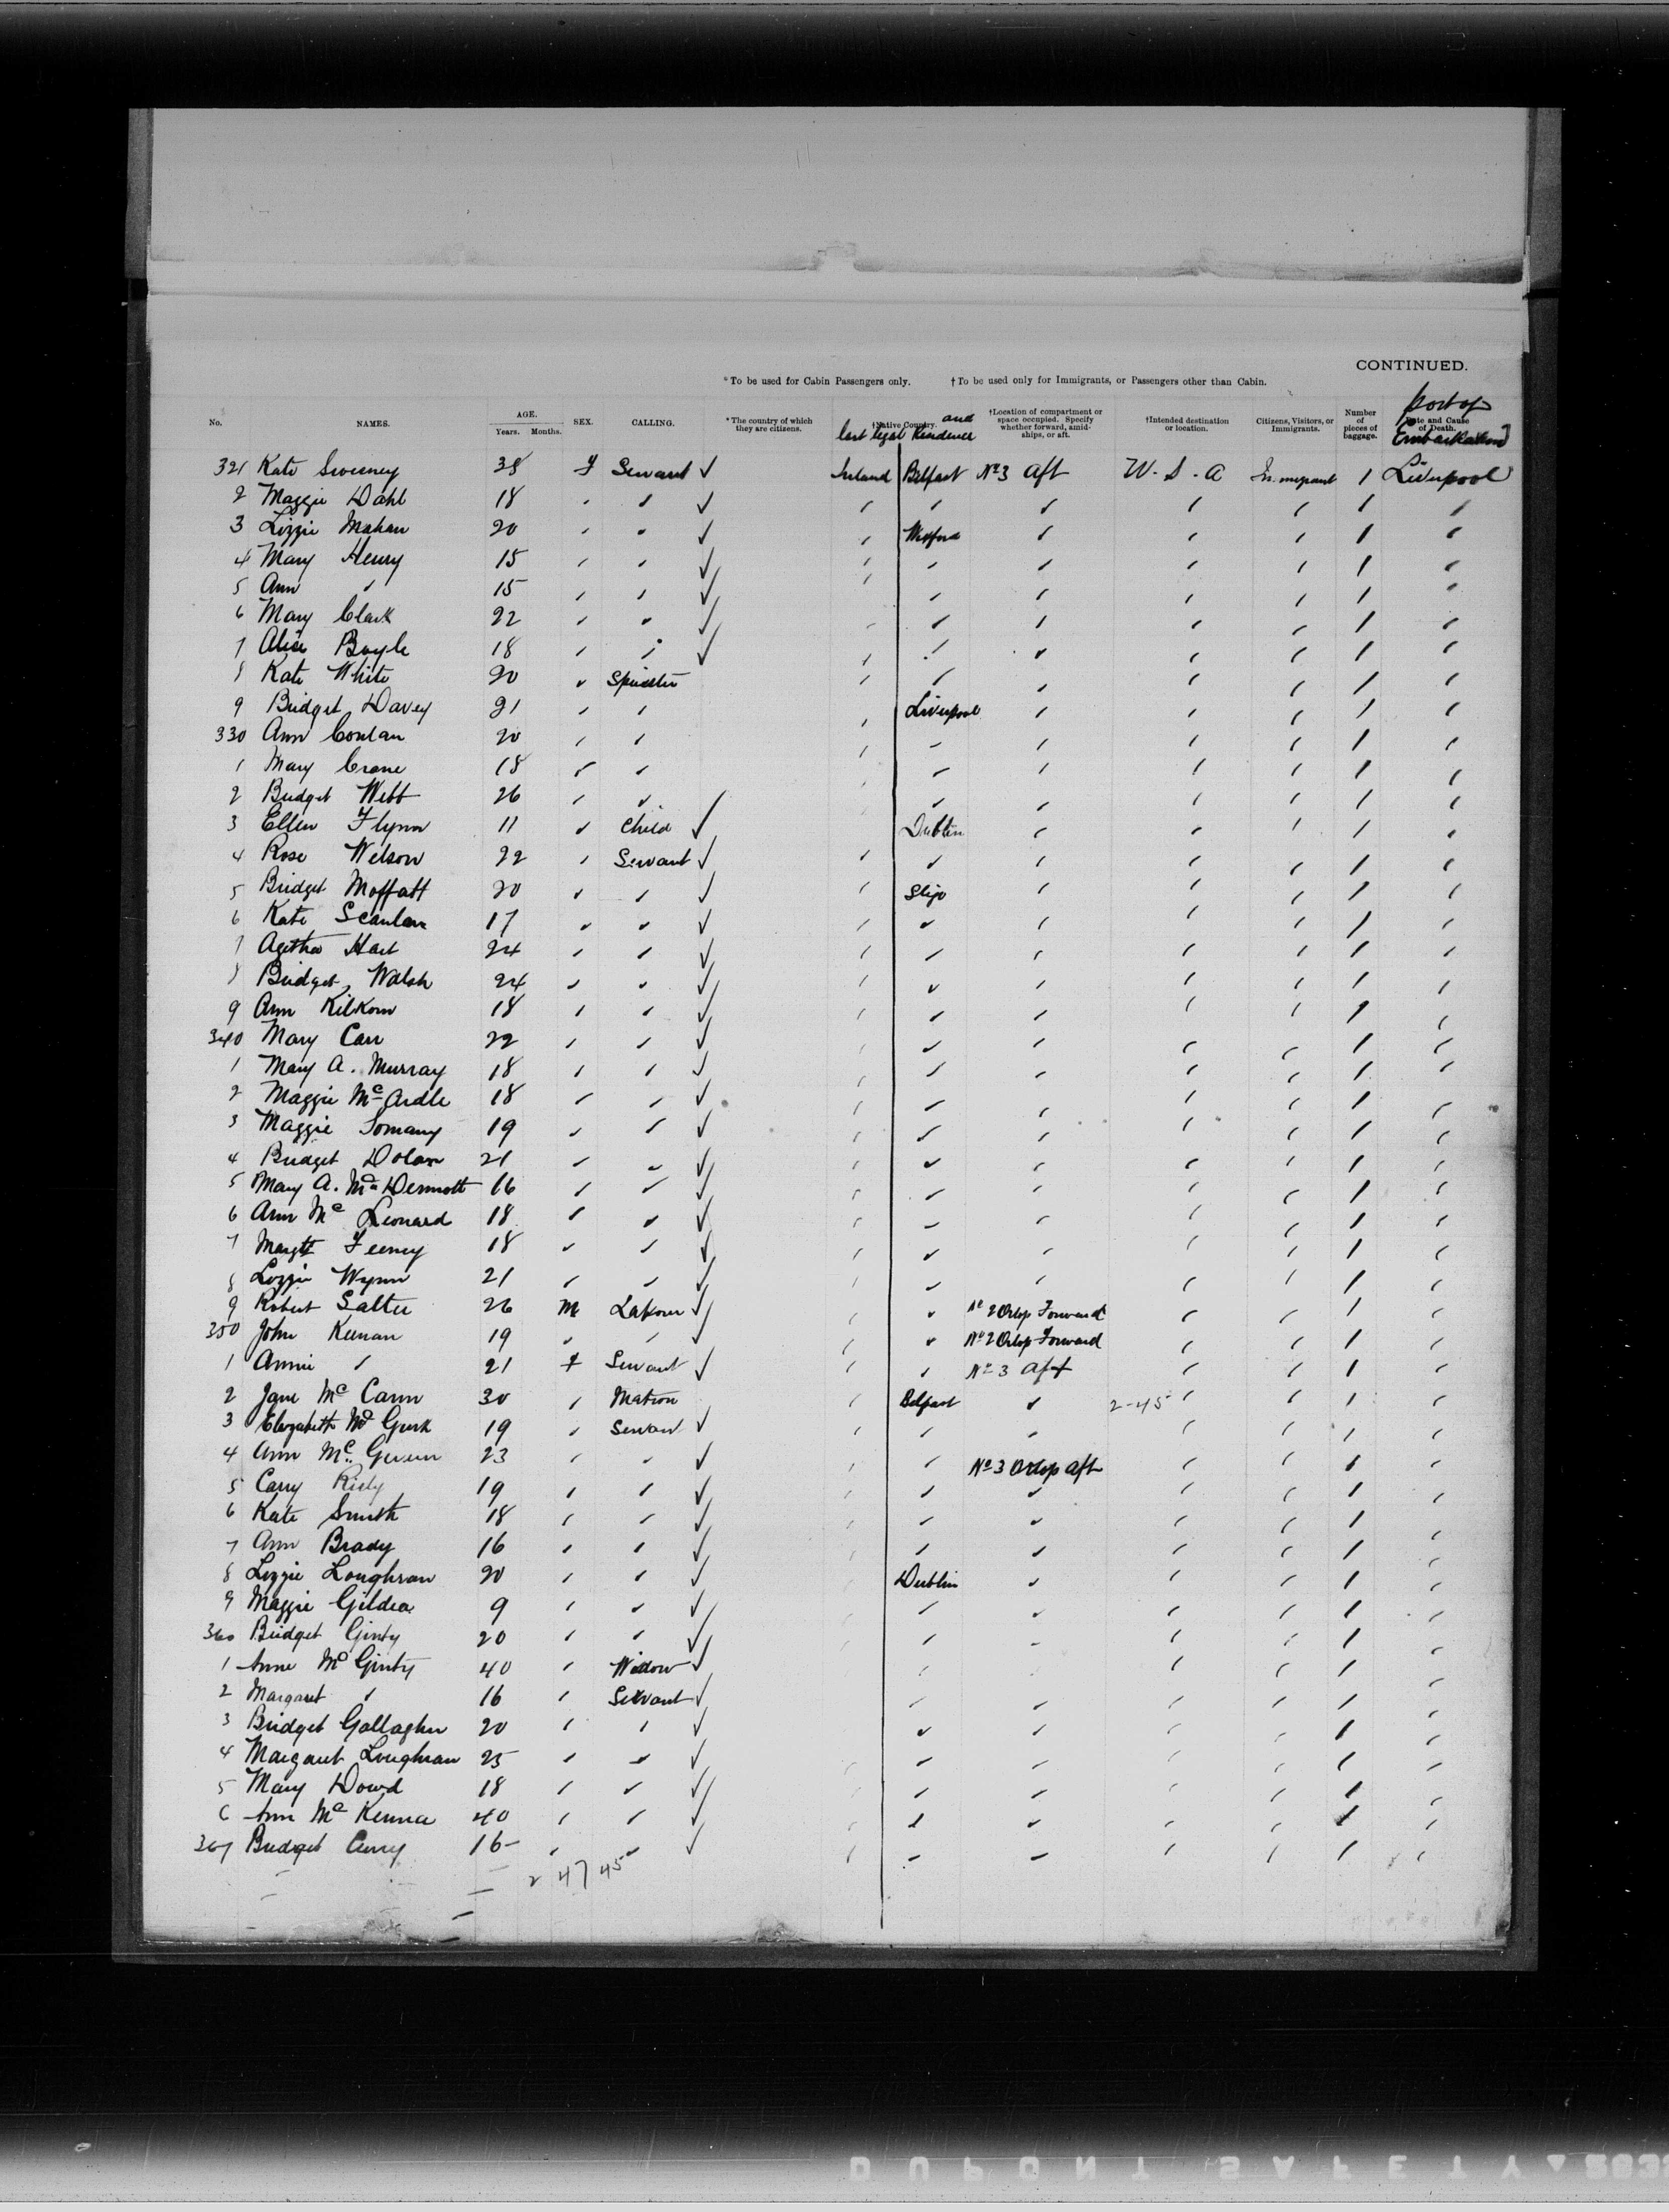 CONTINUED.
*To be used for Cabin Passengers only. †To be used only for Immigrants, or Passengers other than Cabin.
No. NAMES. AGE. Years. Months. SEX. CALLING. *The country of which they are citizens. †Native Country. and last legal Residence †Location of compartment or space occupied. Specify whether forward, amidships, or aft. †Intended destination or location. Citizens, Visitors, or Immigrants. Number of pieces of baggage. Date and Cause of Death. port of Embarkation
321 Kate Sweeney 38 F Servant ✓ Ireland Belfast Nº3 Aft U.S.A Immigrant 1 Liverpool
2 Maggie Dahl 18 " " ✓ " " " " " 1 "
3 Lizzie Mahan 20 " " ✓ " Wexford " " " 1 "
4 Mary Henry 15 " " ✓ " " " " " 1 "
5 Ann " 15 " " ✓ " " " " " 1 "
6 Mary Clark 22 " " ✓ " " " " " 1 "
7 Alice Boyle 18 " " ✓ " " " " " 1 "
8 Kate White 20 " Spinster " " " " " 1 "
9 Bridget Davey 21 " " " Liverpool " " " 1 "
330 Ann Conlan 20 " " " " " " " 1 "
1 Mary Crane 18 " " " " " " " 1 "
2 Bridget Webb 26 " " " " " " " 1 "
3 Ellen Flynn 11 " Child ✓ Dublin " " " 1 "
4 Rose Wilson 22 " Servant ✓ " " " " " 1 "
5 Bridget Moffatt 20 " " ✓ " Sligo " " " 1 "
6 Kate Scanlan 17 " " ✓ " " " " " 1 "
7 Agetha Hart 24 " " ✓ " " " " " 1 "
8 Bridget Walsh 24 " " ✓ " " " " " 1 "
9 Ann Kilkom 18 " " ✓ " " " " " 1 "
340 Mary Carr 22 " " ✓ " " " " " 1 "
1 Mary A. Murray 18 " " ✓ " " " " " 1 "
2 Maggie McArdle 18 " " ✓ " " " " " 1 "
3 Maggie 19 " " ✓ " " " " " 1 "
4 Bridget Dolan 21 " " ✓ " " " " " 1 "
5 Mary A. McDermott 16 " " ✓ " " " " " 1 "
6 Ann Mc Leonard 18 " " ✓ " " " " " 1 "
7 Margtt Feeney 18 " " ✓ " " " " " 1 "
8 Lizzie Wynn 21 " " ✓ " " " " " 1 "
9 Robert Salter 26 M Labour ✓ " " Nº 2 Orlop Forward " " 1 "
350 John Keenan 19 " " ✓ " Nº 2 Orlop Forward " " 1 "
1 Annie " 21 F Servant ✓ " " Nº 3 Aft " " 1 "
2 Jane McCann 30 " Matron " Belfast " 2-45 " " 1 "
3 Elizabeth McGurk 19 " Servant ✓ " " " " " 1 "
4 Ann McGivern 23 " " ✓ " " Nº 3 Orlop Aft " " 1 "
5 Carry 19 " " ✓ " " " " " 1 "
6 Kate Smith 18 " " ✓ " " " " " 1 "
7 Ann Brady 16 " " ✓ " " " " " 1 "
8 Lizzie Loughran 20 " " ✓ Dublin " " " 1 "
9 Maggie Gildea 9 " " ✓ " " " " " 1 "
360 Bridget Ginty 20 " " ✓ " " " " " 1 "
1 Anne McGinty 40 " Widow ✓ " " " 1 "
2 Margaret " 16 " Servant ✓ " " " " 1 "
3 Bridget Gallagher 20 " " ✓ " " " " 1 "
4 Margaret Loughran 25 " " ✓ " " " " " 1 "
5 Mary Dowd 18 " " ✓ " " " " " 1 "
6 Ann McKenna 40 " " ✓ " " " " " 1 "
367 Bridget Curry 16 " " ✓ " " " " " 1 "
2 47 45
DUPONT SAFETY